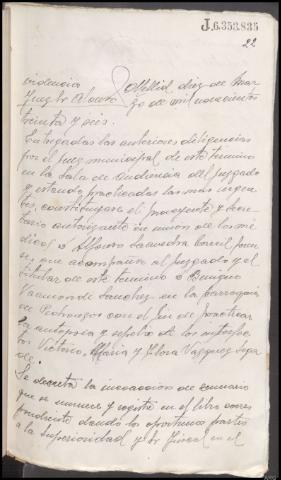 J.6.358.835
22
videncia Mellid diez de Mar-
Juez Sr. Alonso zo de mil novecientos
treinta y seis.
Entregadas las anteriores diligencias
por el Juez municipal de este termino
en la Sala de Audiencia del Juzgado
y estando practicadas las mas urgen-
tes, constituyase el proveyente y Secre-
tario autorizante en union de los mé-
dicos D Alfonso Saavedra foren-
se, que acompaña al Juzgado y el
titular de este termino D Benigno
Varmonde Sanchez en la parroquia
de con el fin de practicar
la autopsia y sepelio de los interfec-
tos Victorio, Maria y Flora Vazquez Sega-
de.
Se decreta la incoacción de sumario
que se numere y registre en el libro corres-
pondiente dando los oportunos partes
a la Superioridad y Sr. Fiscal en el